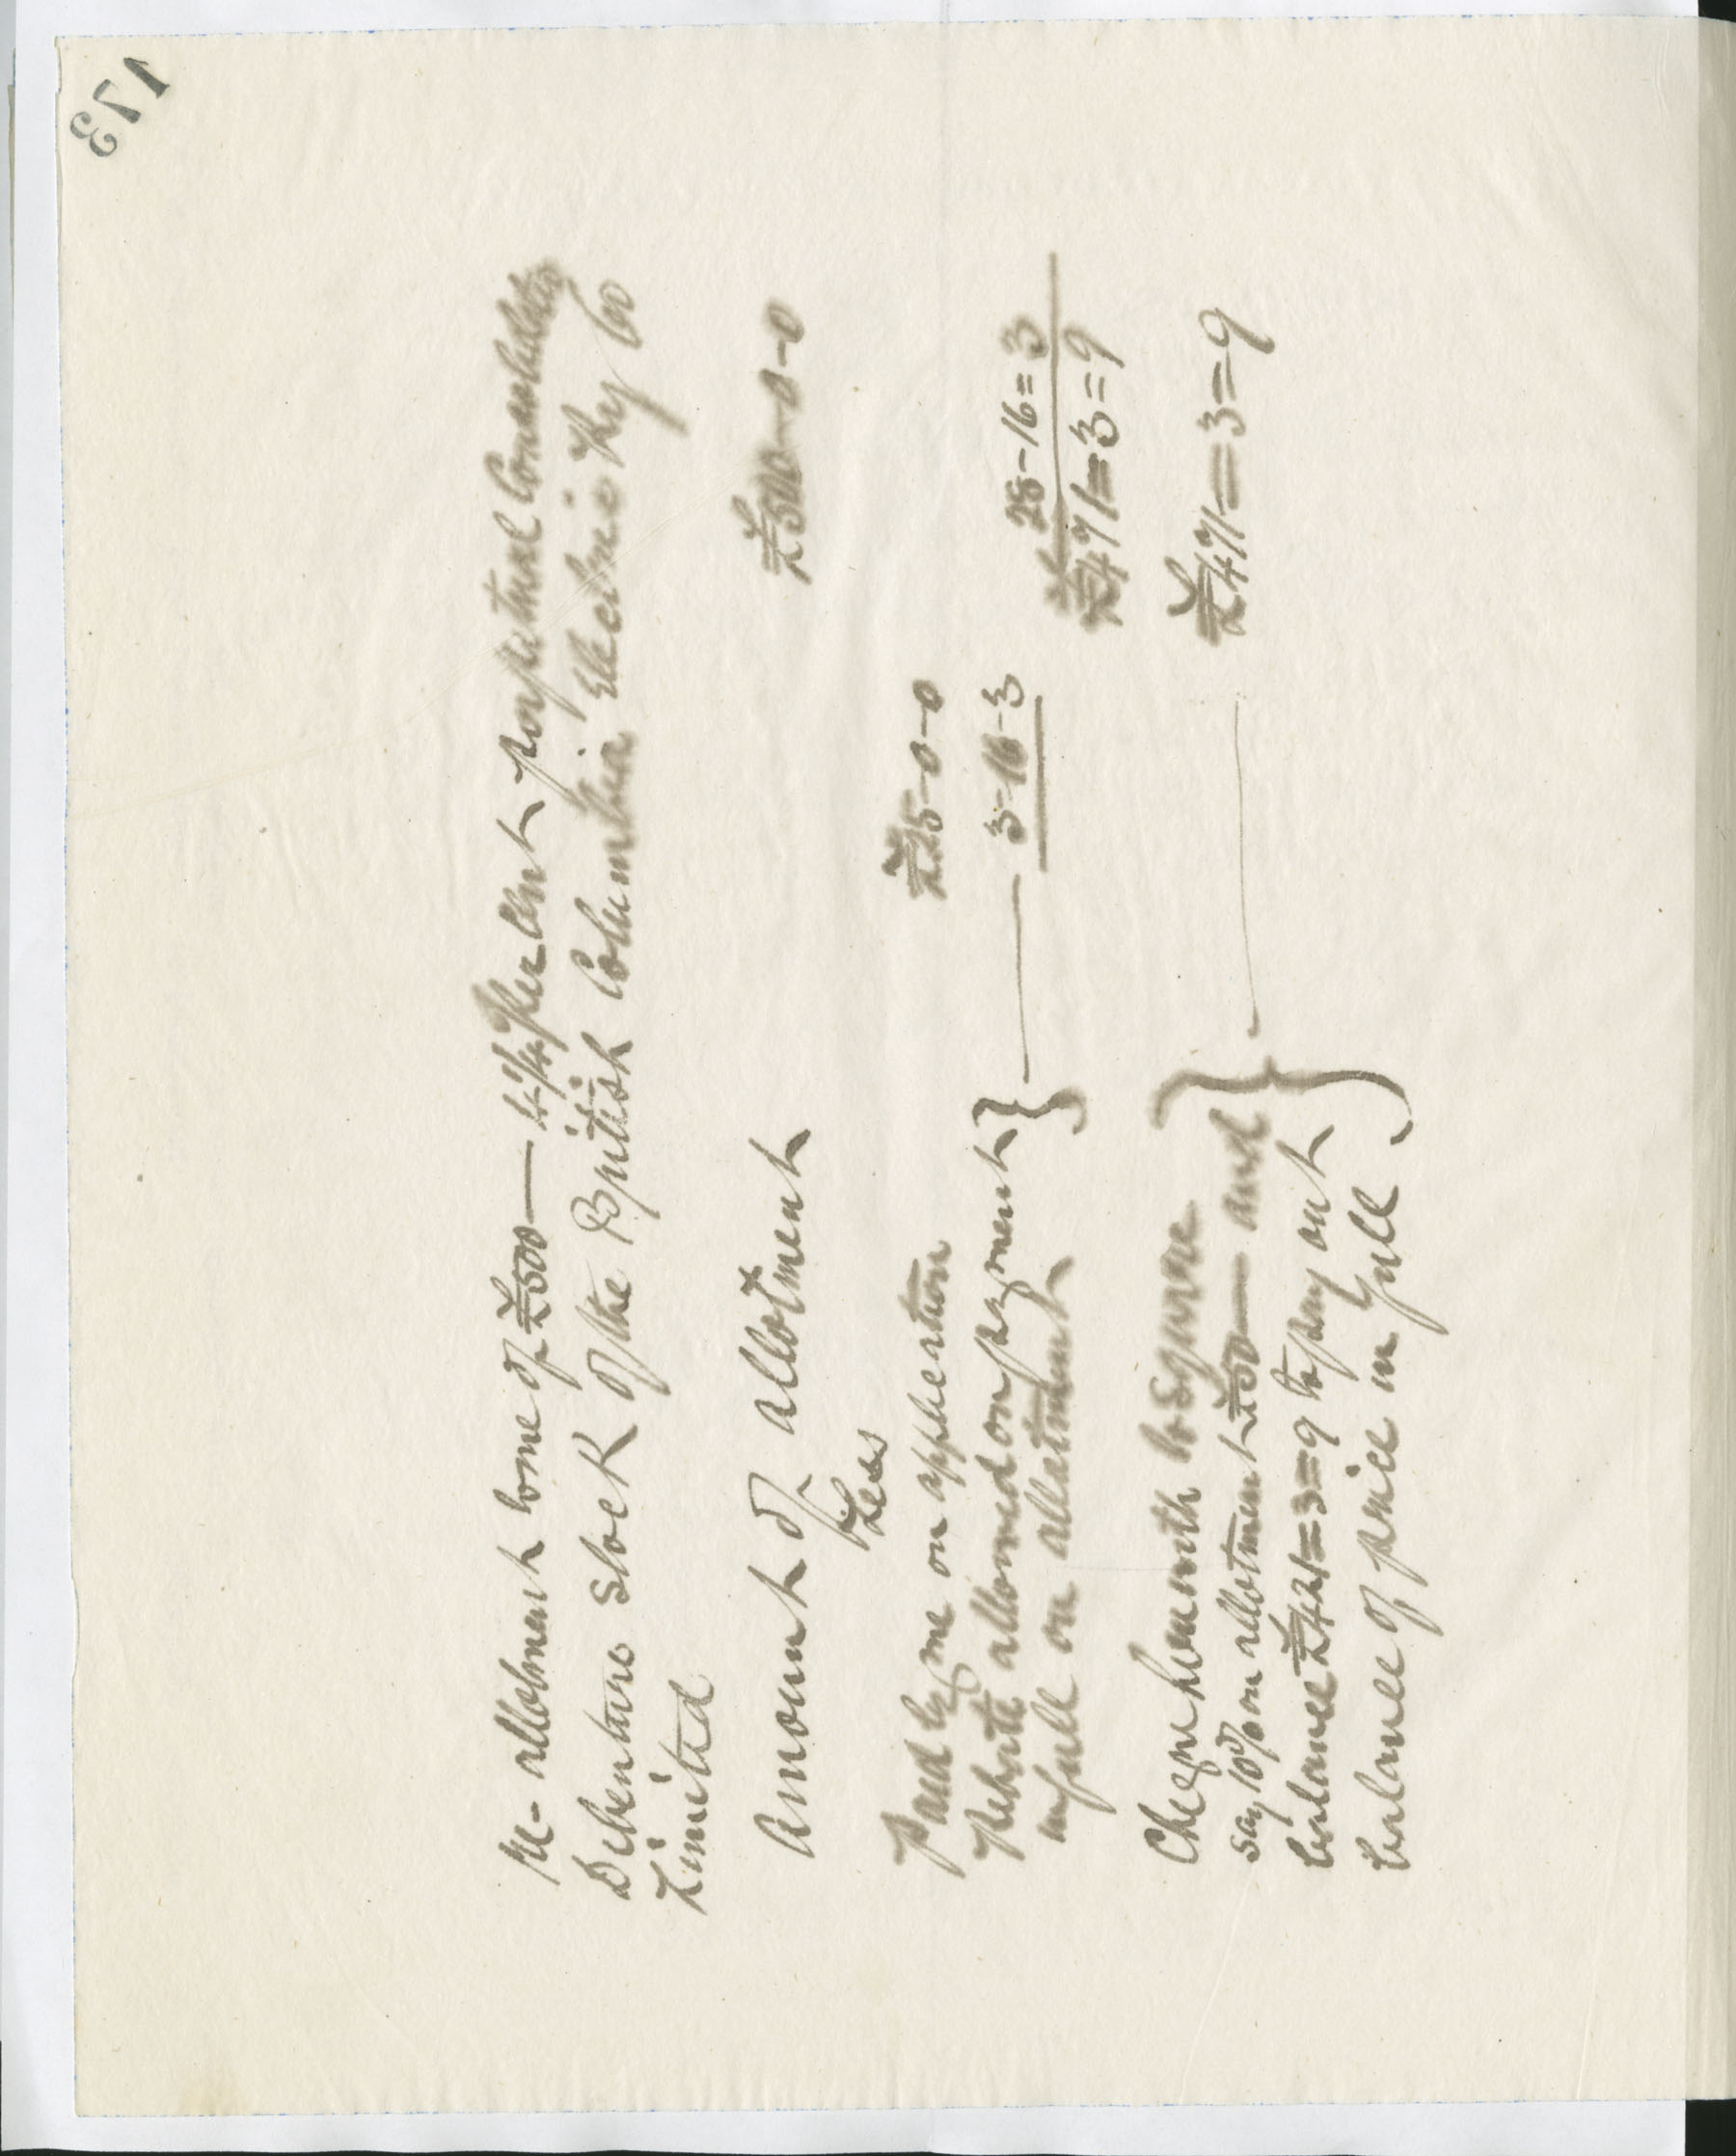 173
Re- allotment to me of £500 — 4¼ Per Cent perpetual Consolidated
Debenture Stock of the British Columbia Electric Ry Co
Limited
Amount of allotment £500-0-0
Less
Paid by me on application £25-0-0
Rebate allowed on payment } — 3-16-3
in full on allotment £ 28-16=3
£471=3=9
Cheque herewith to square
say 10% on allotment £50 — and
balance £421=3=9 to pay out } — £471=3=9
balance of price in full